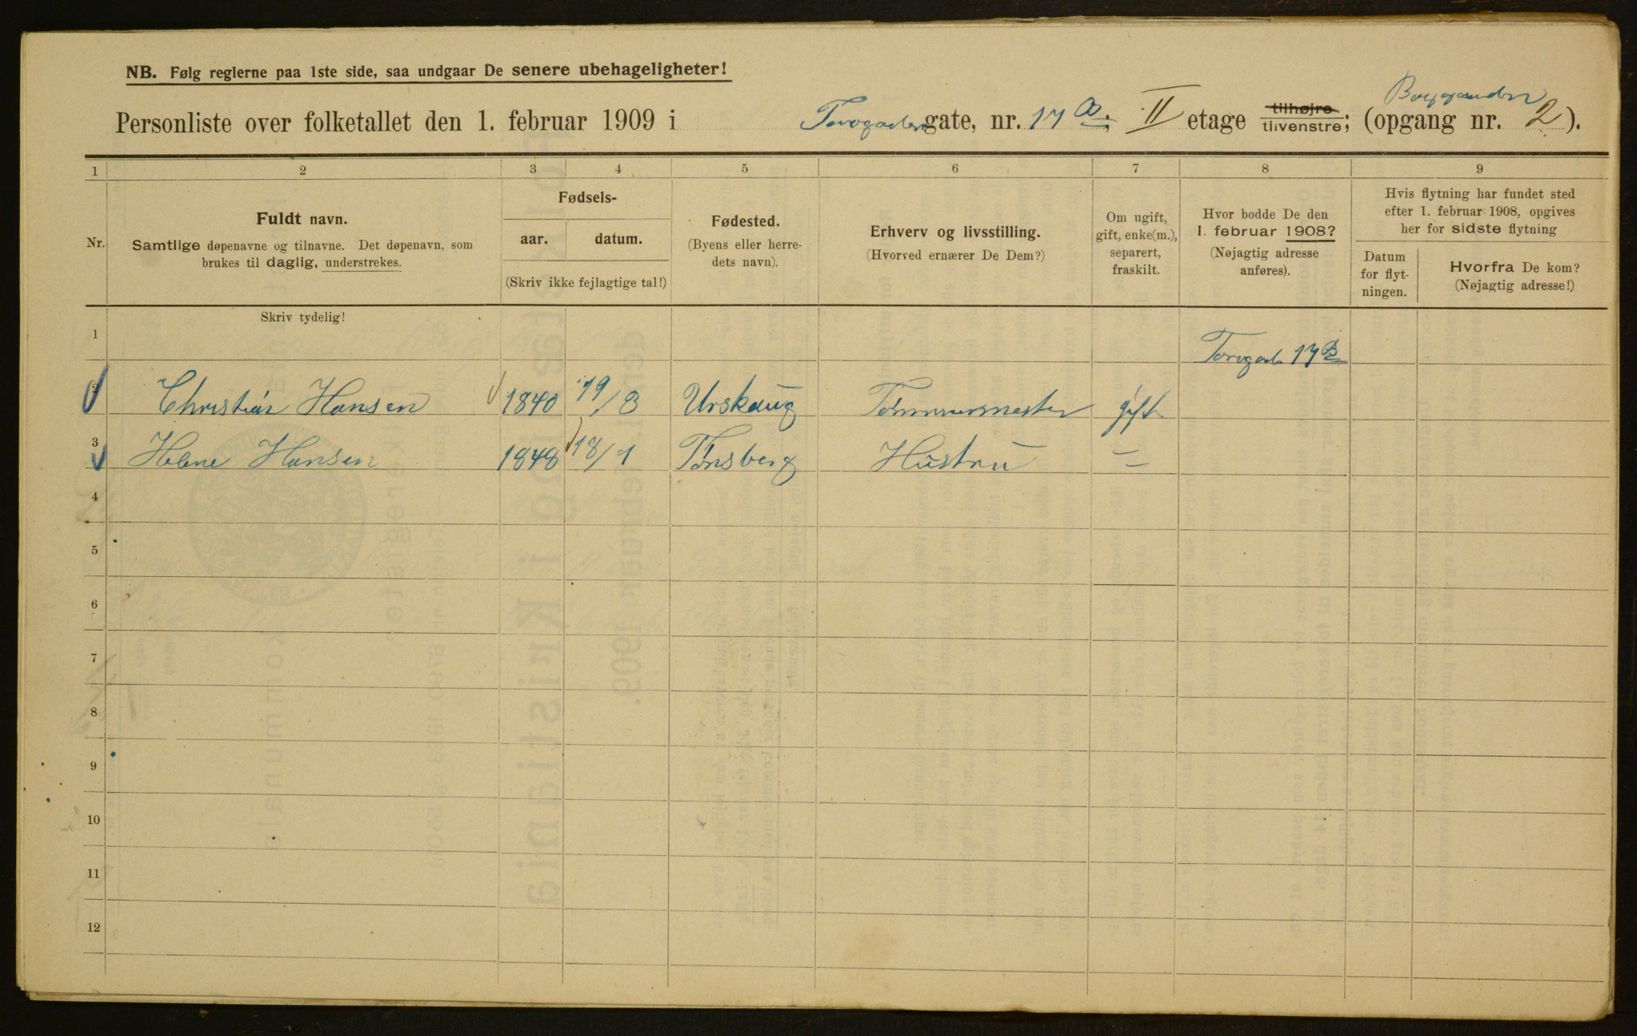 NB. Følg reglerne paa 1ste side, saa undgaar De senere ubehageligheter!
Personliste over folketallet den 1. februar 1909 i gate, nr. 17 B. II etage tilhøjre tilvenstre; (opgang nr. 2).
1 2 3 4 5 6 7 8 9
Nr.
Fuldt navn.
Samtlige døpenavne og tilnavne. Det døpenavn, som
brukes til daglig, understrekes.
Fødsels-
aar. datum.
(Skriv ikke fejlagtige tal!)
Fødested.
(Byens eller herre-
dets navn).
Erhverv og livsstilling.
(Hvorved ernærer De Dem?)
Om ugift,
gift, enke(m.),
separert,
fraskilt.
Hvor bodde De den
1. februar 1908?
(Nøjagtig adresse
anføres).
Hvis flytning har fundet sted
efter 1. februar 1908, opgives
her for sidste flytning
Datum
for flyt-
ningen.
Hvorfra De kom?
(Nøjagtig adresse!)
Skriv tydelig!
1 17 B
Christian Hansen 1840 19/3 Urskaug Tømmermester gift
3 Helene Hansen 1848 18/1 Tønsberg Hustru —
4
5
6
7
8
9
10
11
12